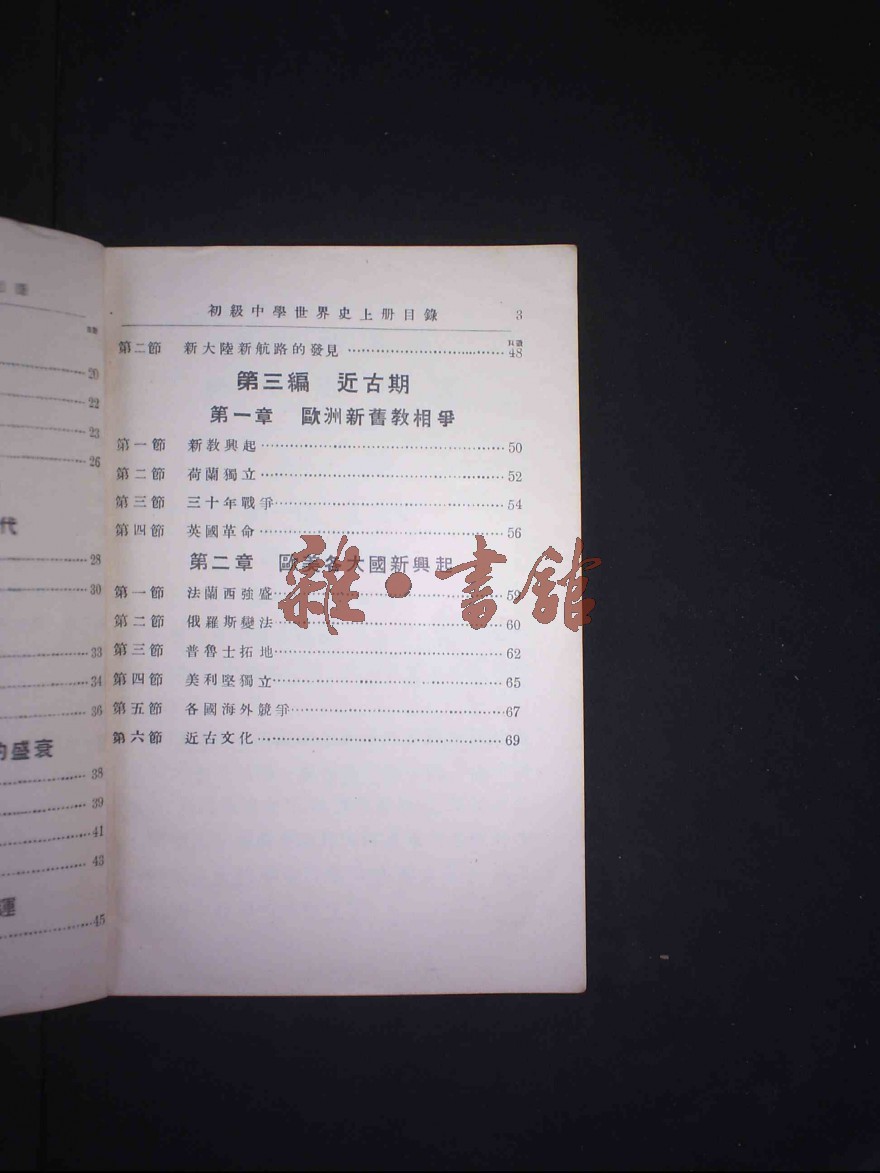 20
22
23
26
代
28
30
33
34
36
的盛衰
38
39
41
43
運
45
初級中學世界史上册目錄 3
頁數
第二節 新大陸新航路的發見 48
第三編 近古期
第一章 歐洲新舊教相爭
第一節 新教興起 50
第二節 荷蘭獨立 52
第三節 三十年戰爭 54
第四節 英國革命 56
第二章 歐美各大國新興起
第一節 法蘭西強盛 59
第二節 俄羅斯變法 60
第三節 普魯士拓地 62
第四節 美利堅獨立 65
第五節 各國海外競爭 67
第六節 近古文化 69
雜·書館